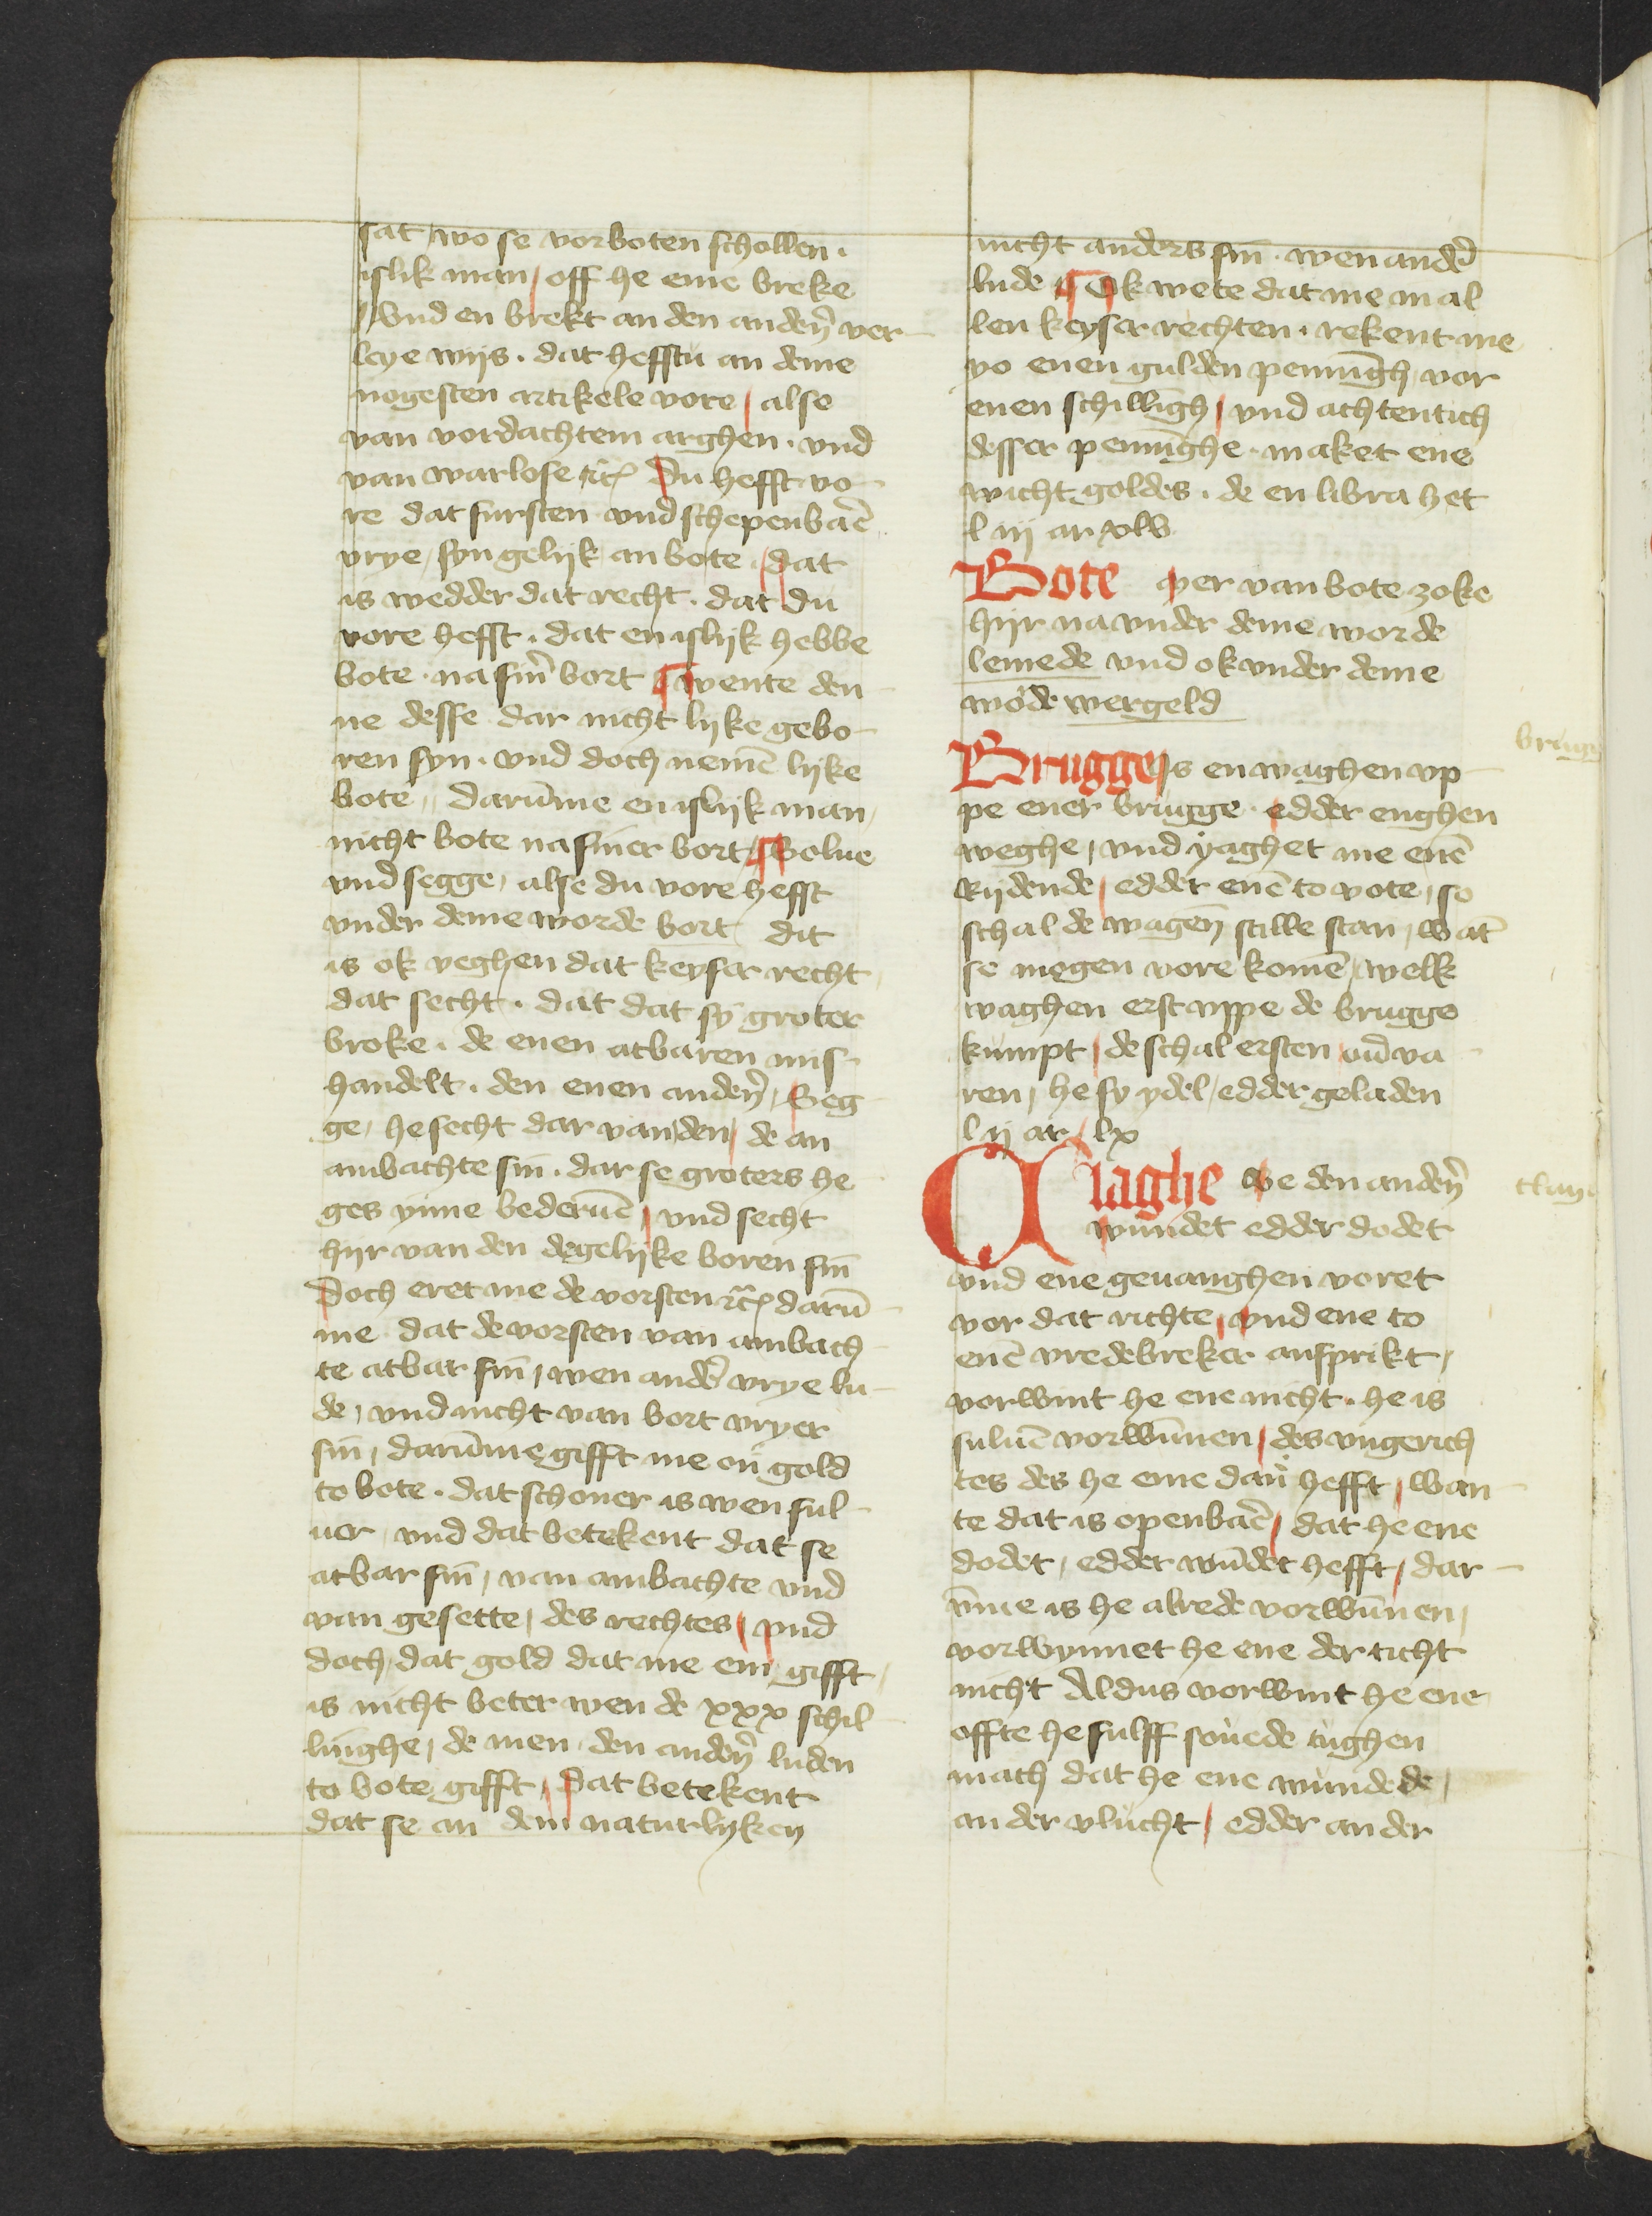 sat / wo se vorboten schollen .
islik man / off he eme breke
/ Vnd en brekt an den andeñ ver-
leye wijs . dat hefftu an deme
nogesten artikele vore / alse
van vordachtem arghen . vnd
van warlose etc̃ Du hefft vo-
re dat fursten vnd schepenbar̄
vrye / syn gelijk an bote / dat
is wedder dat recht . dat du
vore hefft . dat en islijk hebbe
bote . na sin̄ bort ¶ wente den-
ne desse dar nicht lijke gebo-
ren syn . vnd doch nemē lijke
bote / darūme en islijk man /
nicht bote na siner bort / ¶ Solue
vnd segge / alse du vore hefft
vnder deme worde bort / dit
is ok yeghen dat keyser recht /
dat secht . dat dat sy groter
broke . de enen atbaren mis-
handelt . den enen andeñ / Seg-
ge / he secht dar van den / de an
ambachte sin̄ . dar se groters he-
ges ynne bederuē / vnd secht
hijr van den de gelijke boren sin̄
Doch eret me de vorsten etc̃ darū-
me dat de vorsten van ambach-
te atbar sin̄ / wen ander̄ vrye lu-
de / vnd nicht van bort vryer
sin̄ / darūme gifft me en̄ gold
to bote . dat schoner is wen sul-
uer / vnd dat betekent dat se
atbar sin̄ / van ambachte vnd
van gesette / des rechtes / vnd
doch / dat gold dat me em gifft /
is nicht beter wen de xxx schil-
linghe / de men den andeñ luden
to bote gifft / Dat betekent
dat se an dem naturlyken
nicht anders sin̄ . wen ander̄
lude ¶ Ok wete dat me in al
len keyser rechten . rekent me
vo enen gulden pennīgh / vor
enen schillīgh / vnd achtentich
desser pennīghe . maket ene
wicht goldes . de en libra het
l iij ar xlv
Bote Mer van bote zoke
hijr na vnder deme worde
lemede vnd ok vnder deme
wo'de wergeld
Brugge Is en waghen vp-
pe ener brugge . edder enghen
weghe / vnd yaghet me enē
rijdende / edder enē to vote / so
schal de wagen̄ stille stan / wāt
se mogen vore komē / welk
waghen erst vppe de brugge
kumpt / de schal ersten ou̇va-
ren / he sy ydel / edder geladen
l ij ar lx
Claghe We den andeñ
wundet edder dodet
vnd ene geuanghen voret
vor dat richte / vnd ene to
enē vredebreker ansprikt /
vorwint he ene nicht . he is
suluē vorwūnen / des vngerich-
tes des he eme dan̄ hefft / wan-
te dat is openbar̄ / dat he ene
dodet / edder wūdet hefft / dar-
v̄me is he alrede vorwūnen /
vorwynnet he ene der ticht
nicht Aldus vorwint he ene
offte he sulff sou̇ede tughen
mach dat he ene wundede /
an der vlucht / edder an der
brugg